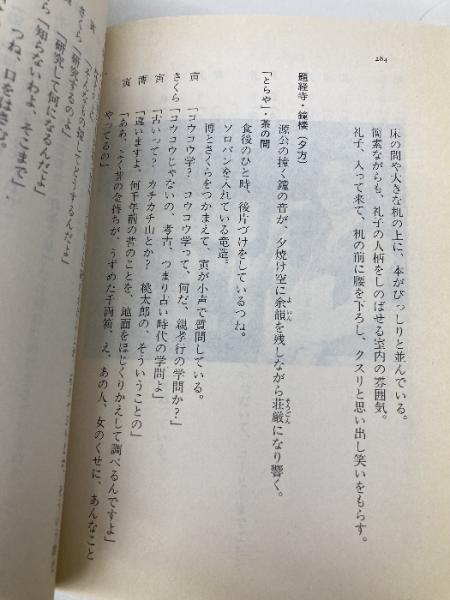 284
床の間や大きな机の上に、本がびっしりと並んでいる。
簡素ながらも、礼子の人柄をしのばせる室内の雰囲気。
礼子、入って来て、机の前に腰を下ろし、クスリと思い出し笑いをもらす。
題経寺・鐘楼（夕方）
源公の撞く鐘の音が、夕焼け空に余韻を残しながら荘厳になり響く。
「とらや」・茶の間
食後のひと時、後片づけをしているつね。
ソロバンを入れている竜造。
博とさくらをつかまえて、寅が小声で質問している。
寅「コウコウ学？ コウコウ学って、何だ、親孝行の学問か？」
さくら「コウコウじゃないの、考古、つまり古い時代の学問よ」
寅「古いって？ カチカチ山とか？ 桃太郎の、そういうことの」
博「違いますよ、何千年前の昔のことを、地面をほじくりかえして調べるんですよ」
寅「ああ、昔の金持ちが、うずめた千両箱、え、あの人、女のくせに、あんなこと
やってるの」
してどうするんだよ」
さくら「研究するのよ」
寅「研究して何になるんだよ」
さくら「知らないわよ、そこまで」
つね、口をはさむ。